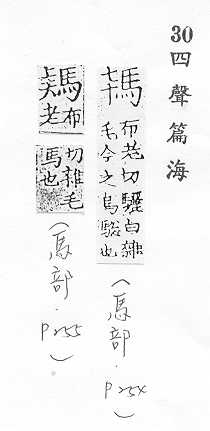 30四聲篇海
駂
布老切驪白雜
毛今之烏驄也
(馬部.P254)
布切雜毛
老馬也
(馬部.P255)